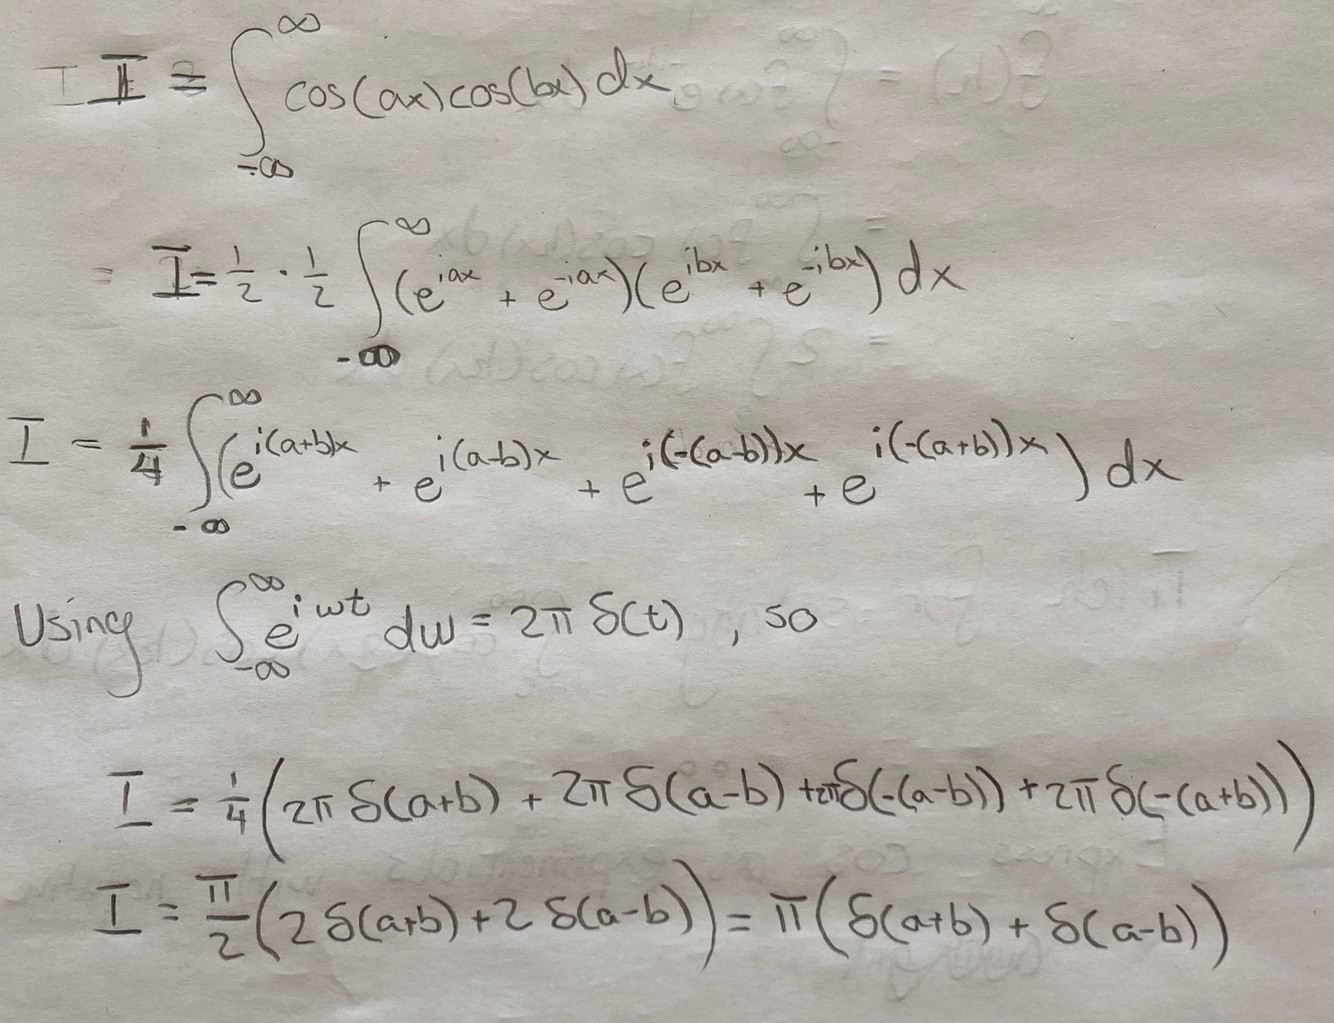 I I = ∫_{-∞}^{∞} cos(ax)cos(bx) dx
= I = 1/2 · 1/2 ∫_{-∞}^{∞} (e^{iax} + e^{-iax})(e^{ibx} + e^{-ibx}) dx
I = 1/4 ∫_{-∞}^{∞} (e^{i(a+b)x} + e^{i(a-b)x} + e^{i(-(a-b))x} + e^{i(-(a+b))x}) dx
Using ∫_{-∞}^{∞} e^{iwt} dw = 2π δ(t) , so
I = 1/4 (2π δ(a+b) + 2π δ(a-b) + 2π δ(-(a-b)) + 2π δ(-(a+b)))
I = π/2 (2 δ(a+b) + 2 δ(a-b)) = π (δ(a+b) + δ(a-b))